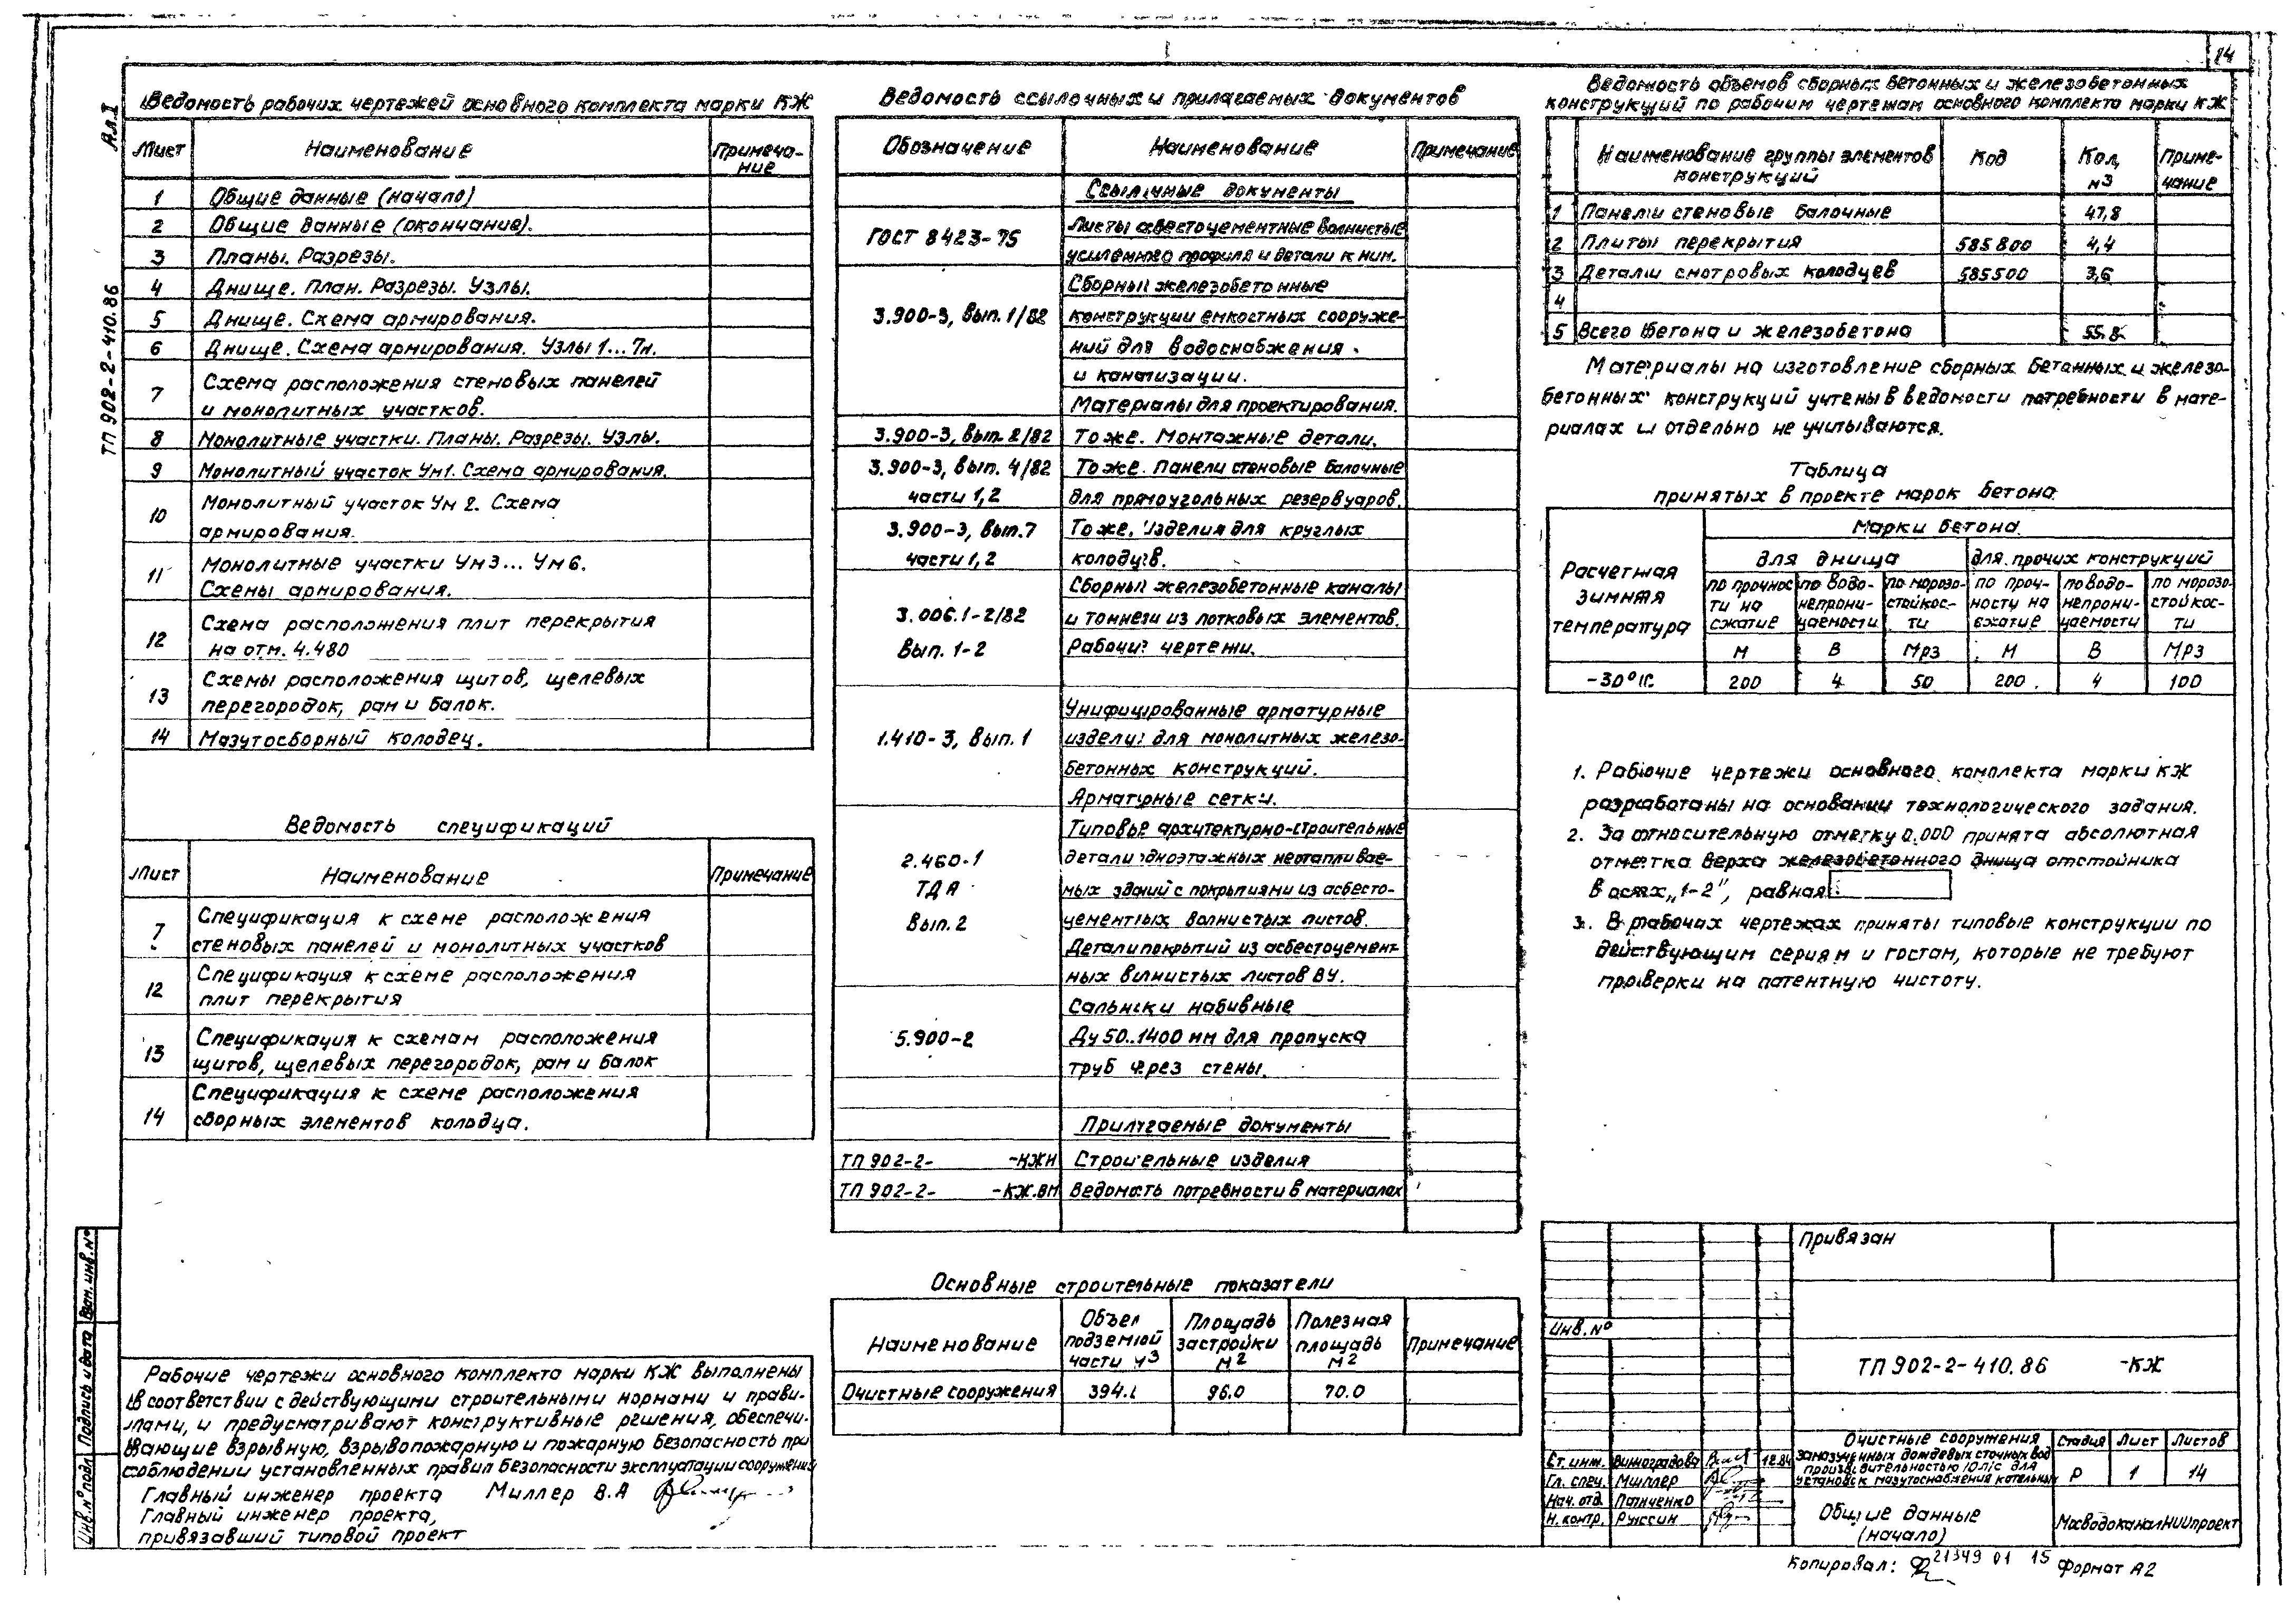 14
Ал.I
ТП 902-2-410.86
Ведомость рабочих чертежей основного комплекта марки КЖ
Лист Наименование Примеча-
ние
1 Общие данные (начало)
2 Общие данные (окончание).
3 Планы. Разрезы.
4 Днище. План. Разрезы. Узлы.
5 Днище. Схема армирования.
6 Днище. Схема армирования. Узлы 1...7н.
7 Схема расположения стеновых панелей
и монолитных участков.
8 Монолитные участки. Планы. Разрезы. Узлы.
9 Монолитный участок Ум1. Схема армирования.
10 Монолитный участок Ум 2. Схема
армирования.
11 Монолитные участки Ум3... Ум6.
Схемы армирования.
12 Схема расположения плит перекрытия
на отм. 4.480
13 Схемы расположения щитов, щелевых
перегородок, рам и балок.
14 Мазутосборный колодец.
Ведомость спецификаций
Лист Наименование Примечание
7 Спецификация к схеме расположения
стеновых панелей и монолитных участков
12 Спецификация к схеме расположения
плит перекрытия
13 Спецификация к схемам расположения
щитов, щелевых перегородок, рам и балок
14 Спецификация к схеме расположения
сборных элементов колодца.
Рабочие чертежи основного комплекта марки КЖ выполнены
в соответствии с действующими строительными нормами и прави-
лами, и предусматривают конструктивные решения, обеспечи-
вающие взрывную, взрывопожарную и пожарную безопасность при
соблюдении установленных правил безопасности эксплуатации сооружения
Главный инженер проекта Миллер В.А
Главный инженер проекта,
привязавший типовой проект
Инв.№ подл Подпись и дата Взам. инв.№
Ведомость ссылочных и прилагаемых документов
Обозначение Наименование Примечание
Ссылочные документы
ГОСТ 8423-75 Листы асбестоцементные волнистые
усиленного профиля и детали к ним.
3.900-3, вып. 1/82 Сборные железобетонные
конструкции емкостных сооруже-
ний для водоснабжения
и канализации.
Материалы для проектирования.
3.900-3, вып. 2/82 То же. Монтажные детали.
3.900-3, вып. 4/82 То же. Панели стеновые балочные
части 1,2 для прямоугольных резервуаров.
3.900-3, вып.7 То же. Изделия для круглых
части 1,2 колодцев.
3.006.1-2/82 Сборные железобетонные каналы
и тоннели из лотковых элементов.
Вып. 1-2 Рабочие чертежи.
1.410-3, вып. 1 Унифицированные арматурные
изделия для монолитных железо-
бетонных конструкций.
Арматурные сетки.
2.460-1 Типовые архитектурно-строительные
детали одноэтажных неотапливае-
ТДА мых зданий с покрытиями из асбесто-
Вып.2 цементных волнистых листов.
Детали покрытий из асбестоцемент-
ных волнистых листов ВУ.
5.900-2 Сальники набивные
Ду 50..1400 мм для пропуска
труб через стены.
Прилагаемые документы
ТП 902-2- -КЖИ Строительные изделия
ТП 902-2- -КЖ.ВМ Ведомость потребности в материалах
Основные строительные показатели
Наименование Объем подземной части м3 Площадь застройки м2 Полезная площадь м2 Примечание
Очистные сооружения 96.0 70.0
Ведомость объемов сборных бетонных и железобетонных
конструкций по рабочим чертежам основного комплекта марки КЖ
Наименование группы элементов конструкций Код Кол, м3 Приме-
чание
1 Панели стеновые балочные 47,8
2 Плиты перекрытия 585800 4,4
3 Детали смотровых колодцев 585500 3,6
4
5 Всего бетона и железобетона 55.8
Материалы на изготовление сборных бетонных и железо-
бетонных конструкций учтены в ведомости потребности в мате-
риалах и отдельно не учитываются.
Таблица
принятых в проекте марок бетона
Расчетная зимняя температура Марки бетона.
для днища для прочих конструкций
по прочнос-
ти на сжатие по водо-
непрони-
цаемости по морозо-
стойкос-
ти по проч-
ности на сжатие по водо-
непрони-
цаемости по морозо-
стойкос-
ти
М В Мрз М В Мрз
-30°С 200 4 50 200 4 100
1. Рабочие чертежи основного комплекта марки КЖ
разработаны на основании технологического задания.
2. За относительную отметку 0.000 принята абсолютная
отметка верха железобетонного днища отстойника
в осях „1-2", равная
3. В рабочих чертежах приняты типовые конструкции по
действующим сериям и гостам, которые не требуют
проверки на патентную чистоту.
Привязан
Инв.№
ТП 902-2-410.86 -КЖ
Ст. инж. Виноградова 12.84
Гл. спец. Миллер
Нач. отд.
Н. контр. Руссин
Очистные сооружения
замазученных дождевых сточных вод
производительностью 10 л/с для
установок мазутоснабжения котельных
Стадия Лист Листов
Р 1 14
Общие данные
(начало)
МосводоканалНИИпроект
Копировал: 21349 01 15 Формат А2